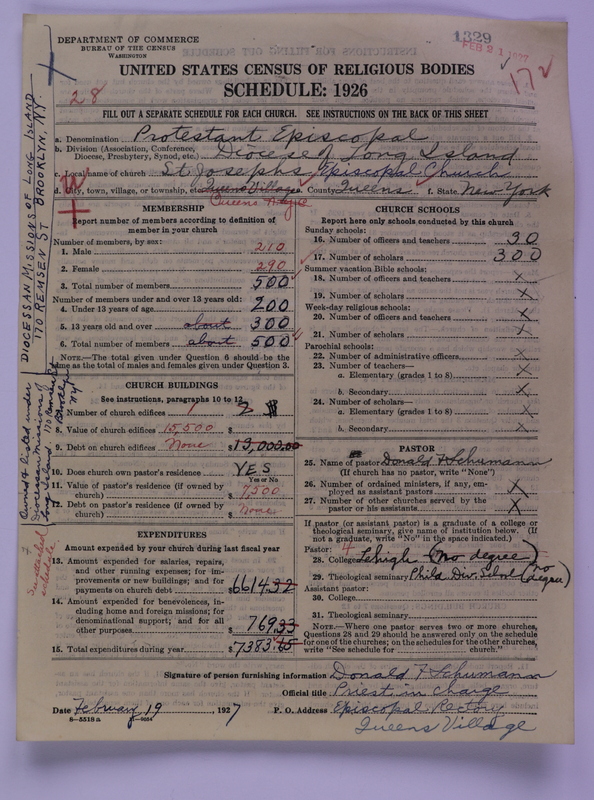 DEPARTMENT OF COMMERCE
BUREAU OF THE CENSUS
WASHINGTON
1329
FEB 21 1927
17
UNITED STATES CENSUS OF RELIGIOUS BODIES
28
SCHEDULE: 1926
FILL OUT A SEPARATE SCHEDULE FOR EACH CHURCH. SEE INSTRUCTIONS ON THE BACK OF THIS SHEET
a. Denomination Protestant Episcopal
b. Division (Association, Conference, Diocese, Presbytery, Synod, etc.) Diocese of Long Island
c. Local name of church St Josephs Episcopal Church
d. City, town, village, or township, etc. Queens Village County Queens f. State New York
Queens
DIOCESSAN MISSIONS OF LONG ISLAND
170 REMSEN ST BROOKLYN, N.Y.
MEMBERSHIP
Report number of members according to definition of
member in your church
Number of members, by sex:
1. Male 210
2. Female 290
3. Total number of members 500
Number of members under and over 13 years old:
4. Under 13 years of age 200
5. 13 years old and over about 300
6. Total number of members about 500
NOTE.—The total given under Question 6 should be the
same as the total of males and females given under Question 3.
CHURCH BUILDINGS
See instructions, paragraphs 10 to 12
7. Number of church edifices 1 2
8. Value of church edifices 15,500 $
9. Debt on church edifices None $ 13,000.00
10. Does church own pastor's residence YES
Yes or No
11. Value of pastor's residence (if owned by
church) $ 7,500
12. Debt on pastor's residence (if owned by
church) $ None
Owned & listed under
Diocessan Missions of
Long Island 170 Remsen St
Brooklyn
NY
See attached
schedule
EXPENDITURES
Amount expended by your church during last fiscal year
13. Amount expended for salaries, repairs,
and other running expenses; for im-
provements or new buildings; and for
payments on church debt $ 6614.32
14. Amount expended for benevolences, in-
cluding home and foreign missions; for
denominational support; and for all
other purposes $ 769.33
15. Total expenditures during year $ 7383.65
CHURCH SCHOOLS
Report here only schools conducted by this church
Sunday schools:
16. Number of officers and teachers 30
17. Number of scholars 300
Summer vacation Bible schools:
18. Number of officers and teachers X
19. Number of scholars X
Week-day religious schools:
20. Number of officers and teachers X
21. Number of scholars X
Parochial schools:
22. Number of administrative officers X
23. Number of teachers—
a. Elementary (grades 1 to 8) X
b. Secondary X
24. Number of scholars—
a. Elementary (grades 1 to 8) X
b. Secondary X
PASTOR
25. Name of pastor Donald F Schumann
(If church has no pastor, write "None")
26. Number of ordained ministers, if any, em-
ployed as assistant pastors X
27. Number of other churches served by the
pastor or his assistants X
If pastor (or assistant pastor) is a graduate of a college or
theological seminary, give name of institution below. (If
not a graduate, write "No" in the space indicated.)
Pastor: 4
28. College Lehigh (no degree)
29. Theological seminary Phila Div. School (no degree)
Assistant pastor:
30. College
31. Theological seminary
NOTE.—Where one pastor serves two or more churches,
Questions 28 and 29 should be answered only on the schedule
for one of the churches; on the schedules for the other churches,
write "See schedule for church."
Signature of person furnishing information Donald F Schumann
Official title Priest in charge
Date February 19, 1927 P. O. Address Episcopal Rectory
8—5518a
Queens Village